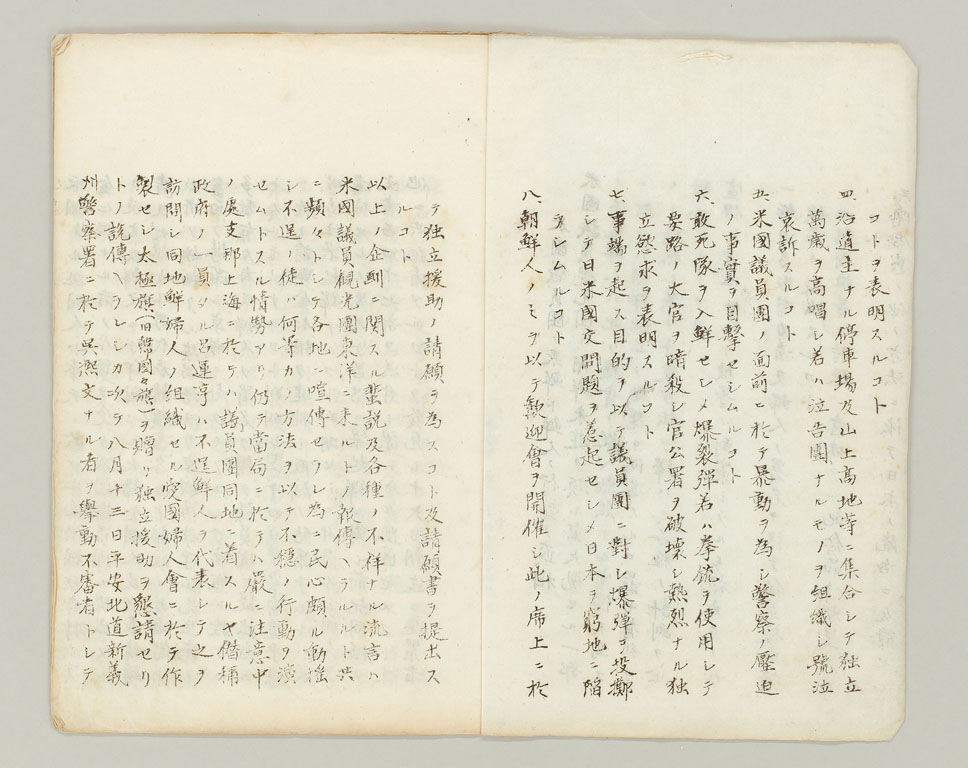 コトヲ表明スルコト
四、沿道主ナル停車場及山上高地等ニ集合シテ独立
萬歳ヲ高唱シ若ハ泣告團ナルモノヲ組織シ號泣
哀訴スルコト
五、米國議員團ノ面前ニ於テ暴動ヲ為シ警察ノ壓迫
ノ事實ヲ目撃セシムルコト
六、敢死隊ヲ入鮮セシメ爆裂弾若ハ拳銃ヲ使用シテ
要路ノ大官ヲ暗殺シ官公署ヲ破壊シ熱烈ナル独
立慾求ヲ表明スルコト
七、事端ヲ起ス目的ヲ以テ議員團ニ對シ爆弾ヲ投擲
シテ日米國交問題ヲ惹起セシメ日本ヲ窮地ニ陥
ラシムルコト
八、朝鮮人ノミヲ以テ歓迎會ヲ開催シ此ノ席上ニ於
テ独立援助ノ請願ヲ為スコト及請願書ヲ提出ス
ルコト
以上ノ企劃ニ関スル蜚説及各種ノ不祥ナル流言ハ
米國議員観光團東洋ニ来ルトノ報傳ヘラルルト共
ニ頻々トシテ各地ニ喧傳セラレ為ニ民心頗ル動揺
シ不逞ノ徒ハ何等カノ方法ヲ以テ不穏ノ行動ヲ演
セムトスル情勢アリ仍テ當局ニ於テハ嚴ニ注意中
ノ處支那上海ニ於テハ議員團同地ニ着スルヤ僭稱
政府ノ一員タル呂運亨ハ不逞鮮人ヲ代表シテ之ヲ
訪問シ同地鮮婦人ノ組織セル愛國婦人會ニ於テ作
製セシ太極旗(旧韓國々旗)ヲ贈リ独立援助ヲ懇請セリ
トノ説傳ヘラレシカ次テ八月十三日平安北道新義
州警察署ニ於テ呉煕文ナル者ヲ擧動不審者トシテ